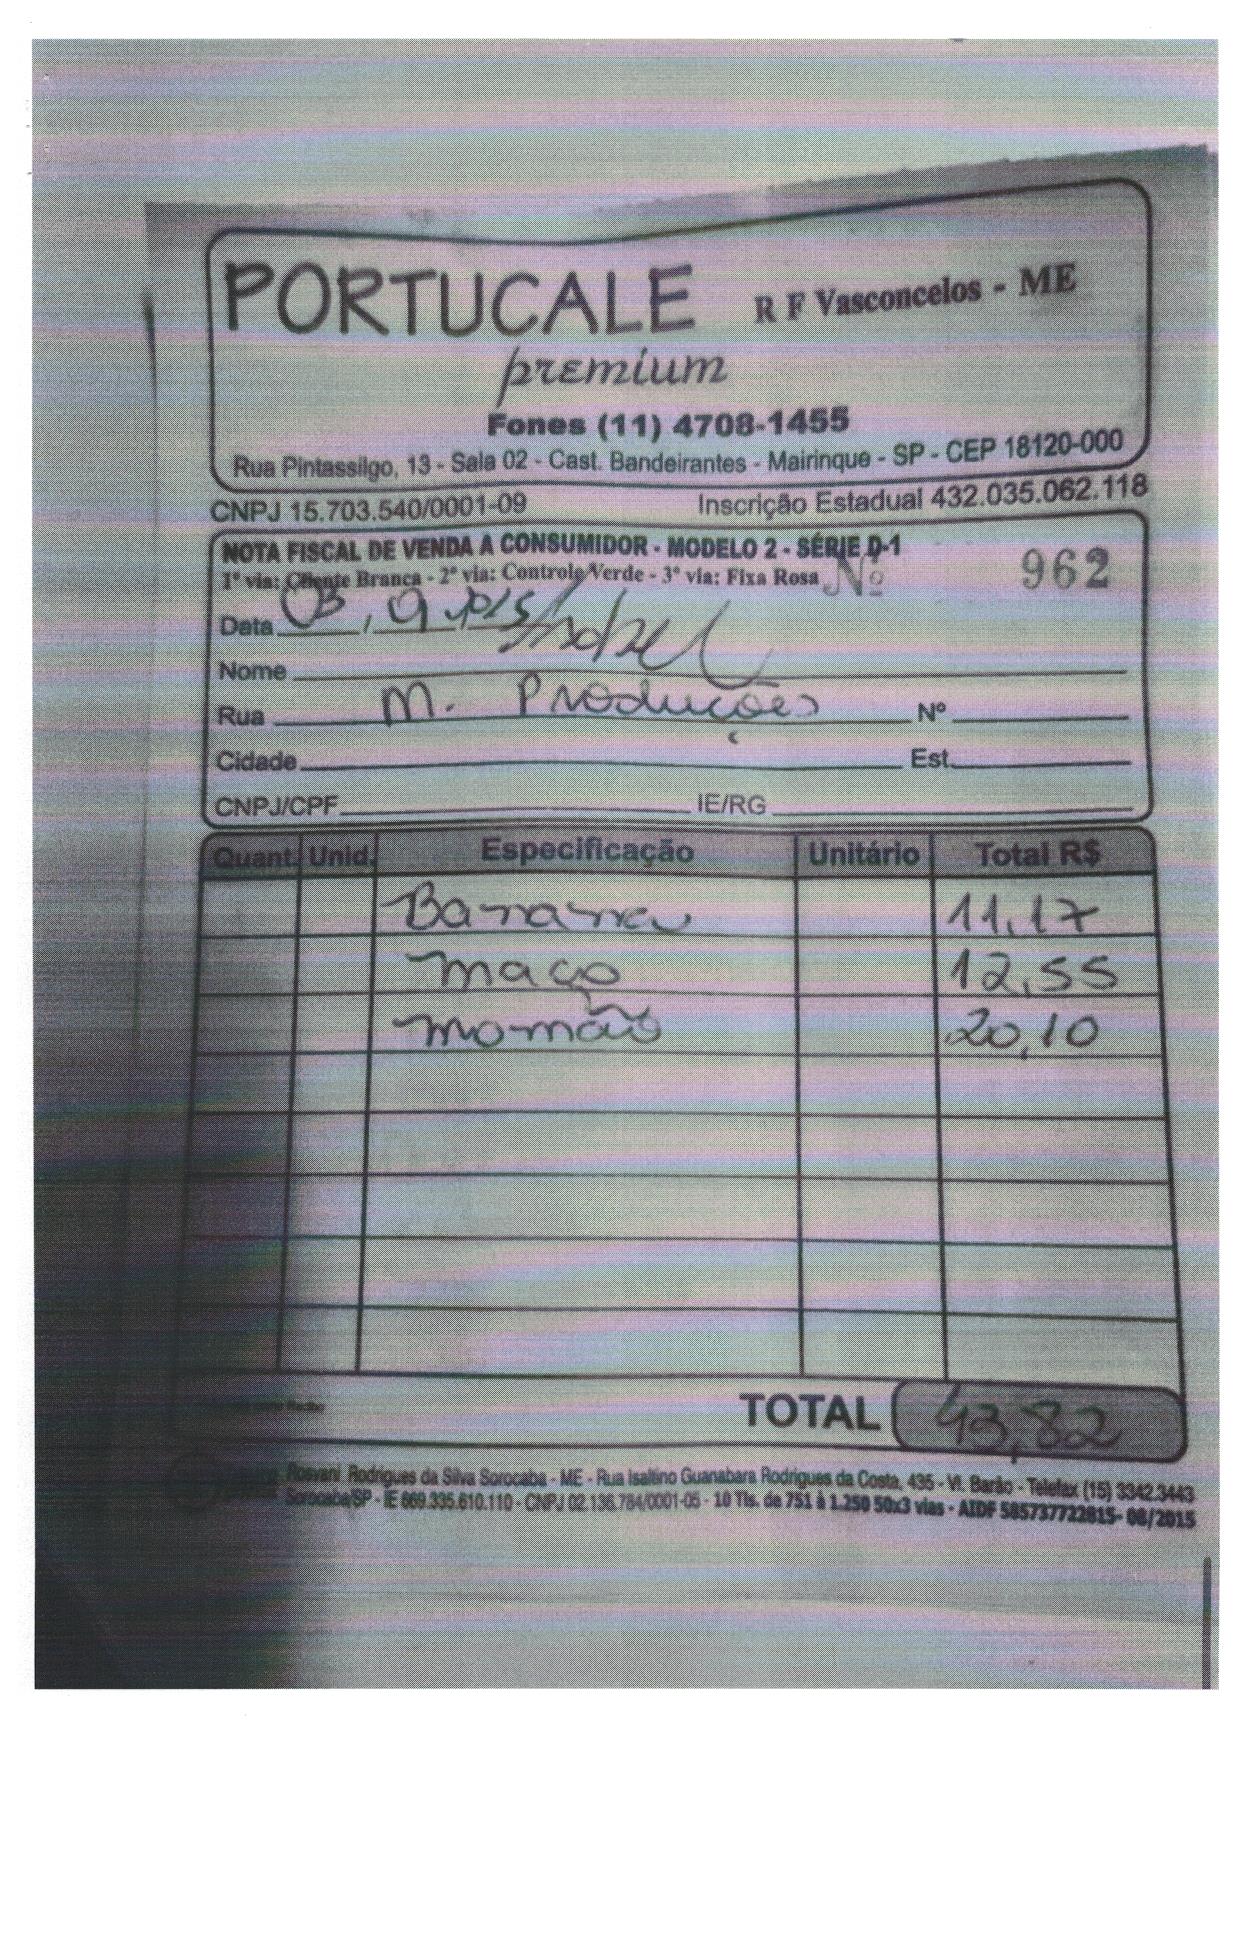 PORTUCALE R F Vasconcelos - ME
premium
Fones (11) 4708-1455
Rua Pintassilgo, 13 - Sala 02 - Cast. Bandeirantes - Mairinque - SP - CEP 18120-000
CNPJ 15.703.540/0001-09 Inscrição Estadual 432.035.062.118
NOTA FISCAL DE VENDA A CONSUMIDOR - MODELO 2 - SÉRIE D-1
1ª via: Cliente Branca - 2ª via: Controle/Verde - 3ª via: Fixa Rosa Nº 962
Data 03 / 9 / 2015
Nome
Rua M. Produções Nº
Cidade Est.
CNPJ/CPF IE/RG
Quant. Unid. Especificação Unitário Total R$
Banana 11,17
maça 12,55
momão 20,10
TOTAL 43,82
Rosvani Rodrigues da Silva Sorocaba - ME - Rua Isaltino Guanabara Rodrigues da Costa, 435 - Vl. Barão - Telefax (15) 3342.3443
Sorocaba/SP - IE 669.335.610.110 - CNPJ 02.136.784/0001-05 - 10 Tls. de 751 à 1.250 50x3 vias - AIDF 585737722815- 08/2015